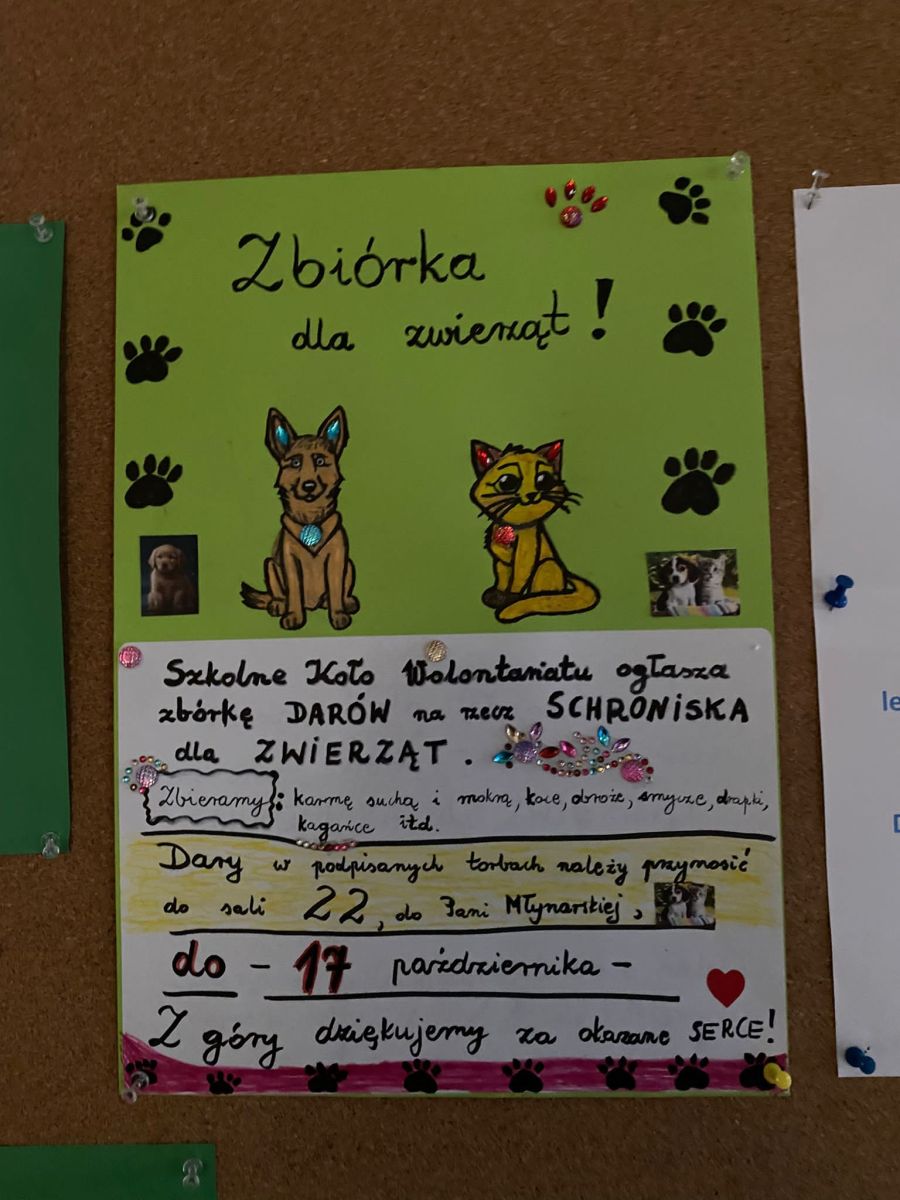 Zbiórka
dla zwierząt!
Szkolne Koło Wolontariatu ogłasza
zbórkę DARÓW na rzecz SCHRONISKA
dla ZWIERZĄT.
Zbieramy: karmę suchą i mokrą, koce, obroże, smycze, drapki,
kagańce itd.
Dary w podpisanych torbach należy przynosić
do sali 22, do Pani Młynarskiej,
do - 17 października -
Z góry dziękujemy za okazane SERCE!
le
D